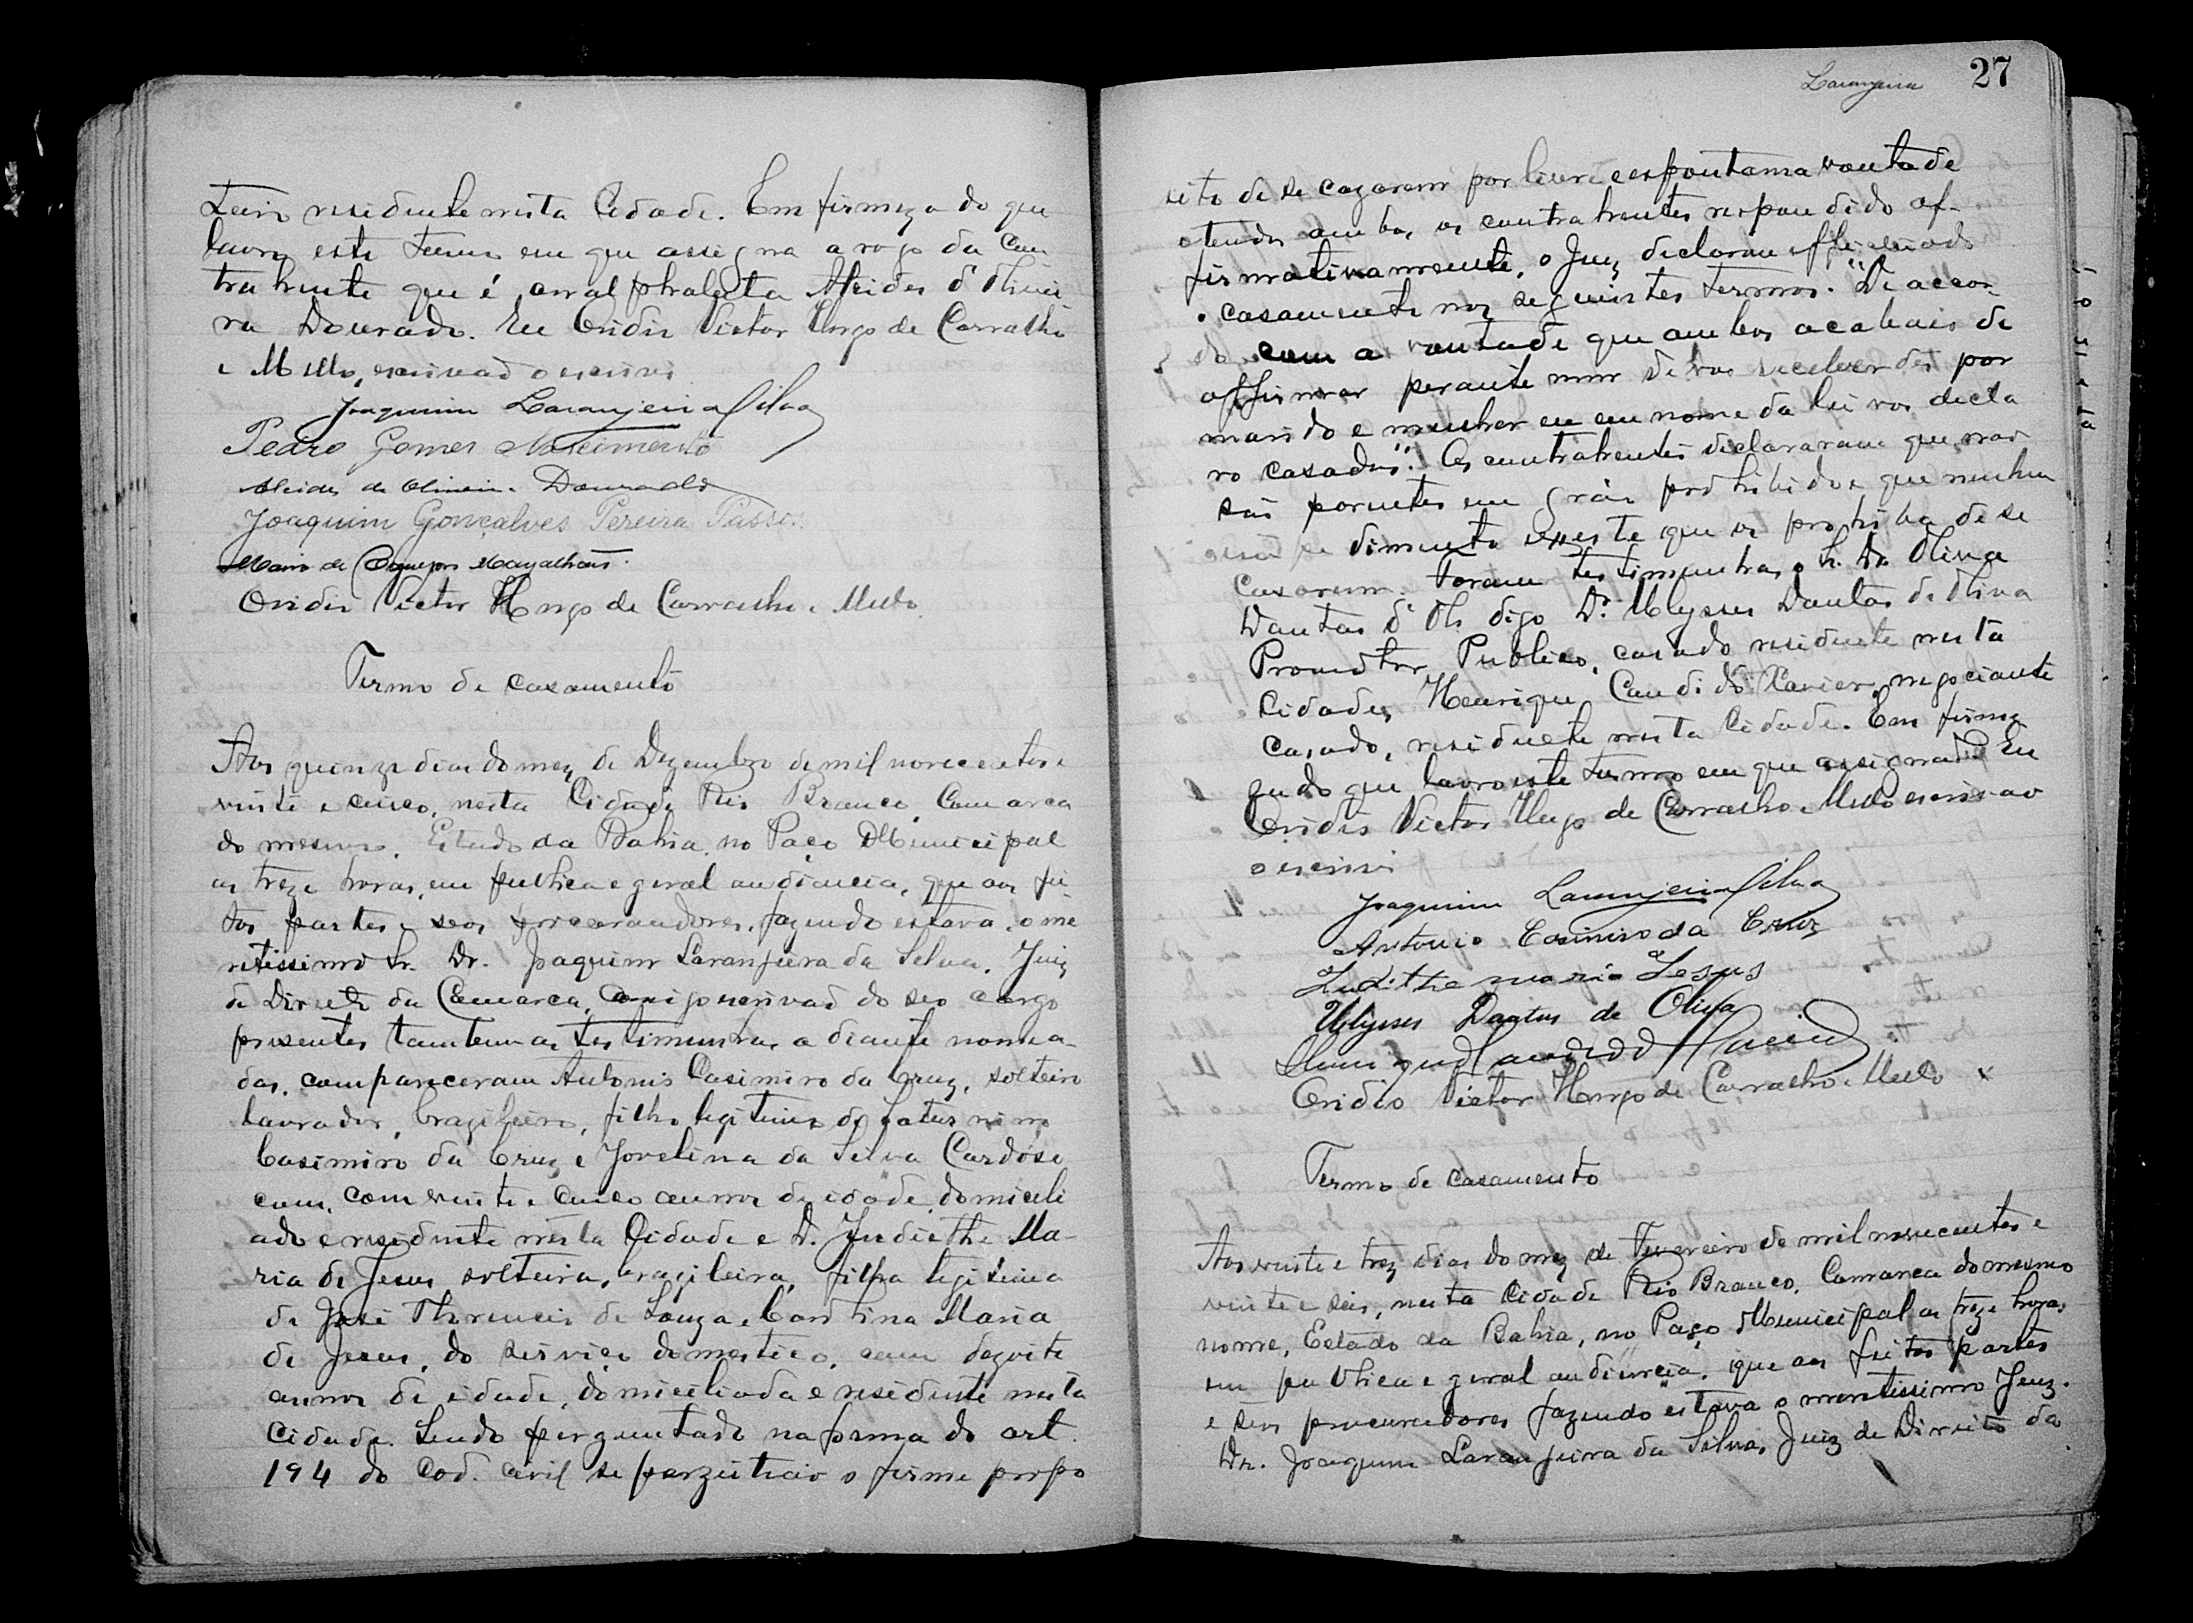 teiro residente nesta Cidade. Em firmeza do que
lavro este termo em que assigna a rogo da Con
trahente que é analphabeta Alcides d'Olivei
ra Dourado. Eu Ovidio Victor Hugo de Carvalho
e Mello, escrivão o escrivi
Joaquim Laranjeira Silva
Pedro Gomes Nascimento
Alcides de Oliveira Dourado
Joaquim Gonçalves Pereira Passos
Mario de Magalhães
Ovidio Victor Hugo de Carvalho e Mello
Termo de casamento
Aos quinze dias do mez de Dezembro de mil novecentos e
vinte e cinco, nesta Cidade Rio Branco, Comarca
do mesmo, Estado da Bahia, no Paço Municipal
as treze horas, em publica e geral audiencia, que aos fei
tos partes e seos procuradores, fazendo estava o me
ritissimo Sr. Dr. Joaquim Laranjeira da Silva, Juiz
de Direito da Comarca, comigo escrivão do seo cargo
presentes tambem as testimunhas a diante nomea-
das, compareceram Antonio Casimiro da Cruz, solteiro
lavrador, brazileiro, filho legitimo de Saturnino
Casimiro da Cruz e Jovelina da Silva Cardoso
com, com vinte e cinco annos de idade, domicili
ado e residente nesta Cidade e D. Judithe Ma-
ria de Jesus solteira, brazileira, filha legitima
de José de Souza e Maria
de Jesus, do serviço domestico, com dezoito
annos de idade, domiciliada e residente nesta
Cidade. Sendo perguntado na forma do art.
194 do Cod. Civil se o firme propo
Laranjeira 27
sito de se cazarem por livre e espontania vontade
e tendo ambos os contrahentes respondido af-
firmativamente, o Juiz declarou effectuado
o casamento nos seguintes termos: "De accor-
do com a vontade que ambos acabais de
affirmar perante mim de vos receberdes por
marido e mulher eu em nome da lei vos decla
ro casados". Os contrahentes declararam que não
são parentes em gráu prohibido e que nenhum
impedimento existe que os prohiba de se
casarem. Foram testimunhas o Sr. Dr. Oliva
Dantas d'Ol. digo Dr. Ulysses Dantas de Oliva
Promotor Publico, casado residente nesta
Cidade, Henrique Candido Xavier, negociante
casado, residente nesta Cidade. Em firme
za do que lavro este termo em que assignado Eu
Ovidio Victor Hugo de Carvalho e Mello escrivão
o escrivi
Joaquim Laranjeira Silva
Antonio Casimiro da Cruz
Judithe maria Jesus
Ulysses Dantas de Oliva
Henrique Candido Xavier
Ovidio Victor Hugo de Carvalho e Mello
Termo de casamento
Aos vinte e trez dias do mez de Fevereiro de mil novecentos e
vinte e seis, nesta Cidade Rio Branco, Comarca do mesmo
nome, Estado da Bahia, no Paço Municipal as treze horas
em publica e geral audiencia, que aos feitos partes
e seos procuradores fazendo estava o meretissimo Juiz.
Dr. Joaquim Laranjeira da Silva, Juiz de Direito da